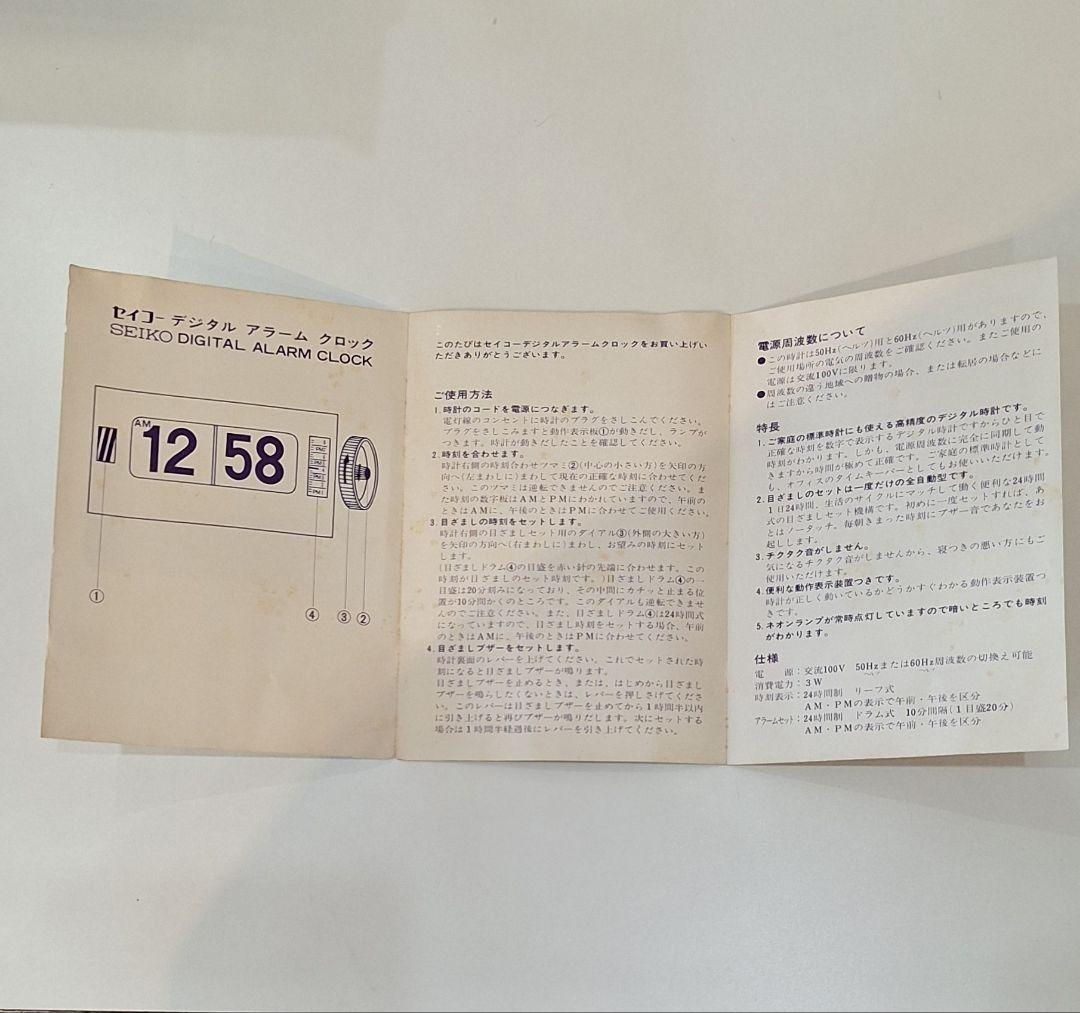 セイコー デジタル アラーム クロック
SEIKO DIGITAL ALARM CLOCK
AM
12 58
①
④ ③ ②
このたびはセイコーデジタルアラームクロックをお買い上げい
ただきありがとうございます。
ご使用方法
1.時計のコードを電源につなぎます。
電灯線のコンセントに時計のプラグをさしこんでください。
プラグをさしこみますと動作表示板①が動きだし、ランプが
つきます。時計が動きだしたことを確認してください。
2.時刻を合わせます。
時計右側の時刻合わせツマミ②(中心の小さい方)を矢印の方
向へ(左まわしに)まわして現在の正確な時刻に合わせてくだ
さい。このツマミは逆転できませんのでご注意ください。ま
た時刻の数字板はAMとPMにわかれていますので、午前の
ときはAMに、午後のときはPMに合わせてご使用ください。
3.目ざましの時刻をセットします。
時計右側の目ざましセット用のダイアル③(外側の大きい方)
を矢印の方向へ(右まわしに)まわし、お望みの時刻にセット
します。
(目ざましドラム④の目盛を赤い針の先端に合わせます。この
時刻が目ざましのセット時刻です。)目ざましドラム④の一
目盛は20分刻みになっており、その中間にカチッと止まる位
置が10分間かくのところです。このダイアルも逆転できませ
んのでご注意ください。また、目ざましドラム④は24時間式
になっていますので、目ざまし時刻をセットする場合、午前
のときはAMに、午後のときはPMに合わせてください。
4.目ざましブザーをセットします。
時計裏面のレバーを上げてください。これでセットされた時
刻になると目ざましブザーが鳴ります。
目ざましブザーを止めるとき、または、はじめから目ざまし
ブザーを鳴らしたくないときは、レバーを押しさげてくださ
い。このレバーは目ざましブザーを止めてから1時間半以内
に引き上げると再びブザーが鳴りだします。次にセットする
場合は1時間半経過後にレバーを引き上げてください。
電源周波数について
●この時計は50Hz(ヘルツ)用と60Hz(ヘルツ)用がありますので、
ご使用場所の電気の周波数をご確認ください。またご使用の
電源は交流100Vに限ります。
●周波数の違う地域への贈物の場合、または転居の場合などに
はご注意ください。
特長
1.ご家庭の標準時計にも使える高精度のデジタル時計です。
正確な時刻を数字で表示するデジタル時計ですからひと目で
時刻がわかります。しかも、電源周波数に完全に同期して動
きますから時間が極めて正確です。ご家庭の標準時計として
も、オフィスのタイムキーパーとしてもお使いいただけます。
2.目ざましのセットは一度だけの全自動型です。
1日24時間、生活のサイクルにマッチして働く便利な24時間
式の目ざましセット機構です。初めに一度セットすれば、あ
とはノータッチ。毎朝きまった時刻にブザー音であなたをお
起しします。
3.チクタク音がしません。
気になるチクタク音がしませんから、寝つきの悪い方にもご
使用いただけます。
4.便利な動作表示装置つきです。
時計が正しく動いているかどうかすぐわかる動作表示装置つ
きです。
5.ネオンランプが常時点灯していますので暗いところでも時刻
がわかります。
仕様
電 源:交流100V 50Hzまたは60Hz周波数の切換え可能
消費電力:3W
時刻表示:24時間制 リーフ式
AM・PMの表示で午前・午後を区分
アラームセット:24時間制 ドラム式 10分間隔(1目盛20分)
AM・PMの表示で午前・午後を区分